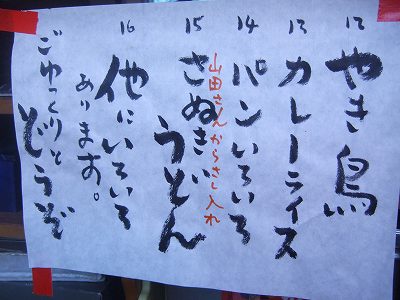 12 やき鳥
13 カレーライス
14 パンいろいろ
山田さんからさし入れ
15 さぬきうどん
16 他にいろいろ
あります。
ごゆっくりと
どうぞ